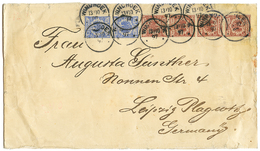 Frau
Augusta Günther
Nonnen Str. 4
Leipzig Plagwitz
Germany